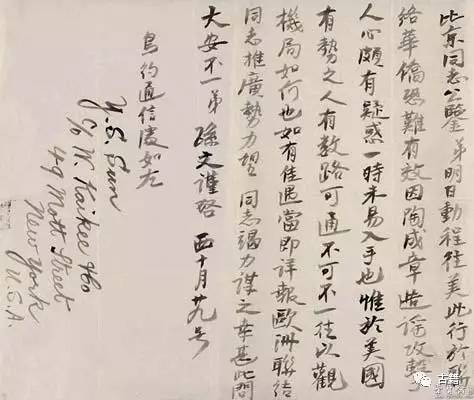 比京同志公鑒 弟明日動程往美此行於聯
絡華僑恐難有效因陶成章造謠攻擊
人心頗有疑惑一時未易入手也惟於美國
有勢之人有數路可通不可不一往以觀
機局如何也如有佳遇當即詳報歐洲聯結
同志推廣勢力望 同志竭力謀之幸甚此問
大安不一 弟 孫文謹啓 西十月廿九号
鳥約通信處如左
Y. S. Sun
c/o W. Kaikee Ho
49 Mott Street
New York
U.S.A.
古籍